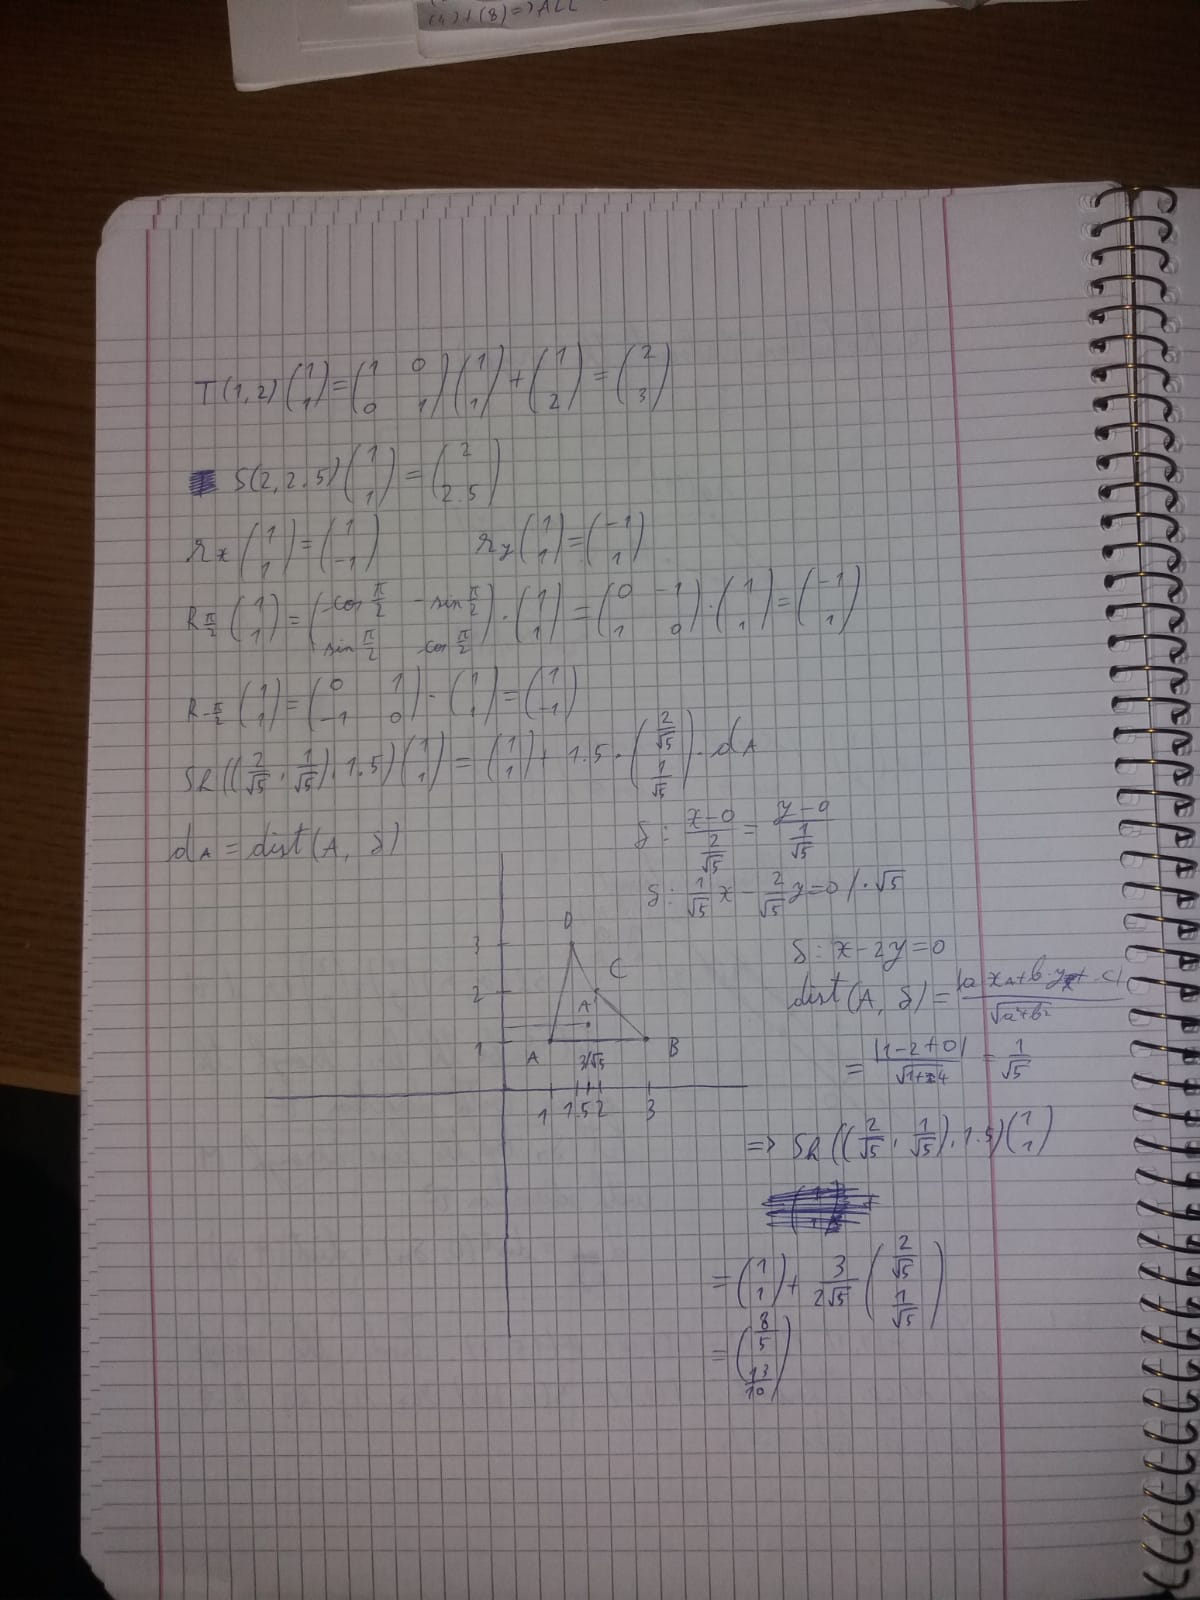 (4)+(8)=>ALL
T(1,2)(1 1)=(1 0 0 1)(1 1)+(1 2)=(2 3)
S(2,2.5)(1 1)=(2 2.5)
rx(1 1)=(1 -1) ry(1 1)=(-1 1)
Rπ/2(1 1)=(cos π/2 -sin π/2 sin π/2 cos π/2)·(1 1)=(0 -1 1 0)·(1 1)=(-1 1)
R-π/2(1 1)=(0 1 -1 0)·(1 1)=(1 -1)
Sh((2/√5, 1/√5), 1.5)(1 1)=(1 1)+1.5·(2/√5 1/√5)·dA
dA=dist(A, δ)
δ: x-0/(2/√5)=y-0/(1/√5)
δ: 1/√5 x-2/√5 y=0 /·√5
δ: x-2y=0
dist(A, δ)=|a·xA+b·yA+c|/√a²+b²
=|1-2+0|/√1+4=1/√5
=> Sh((2/√5, 1/√5), 1.5)(1 1)
=(1 1)+3/2√5(2/√5 1/√5)
=(8/5 13/10)
3
D
C
2
A'
1
A
B
3/√5
1 1.5 2 3